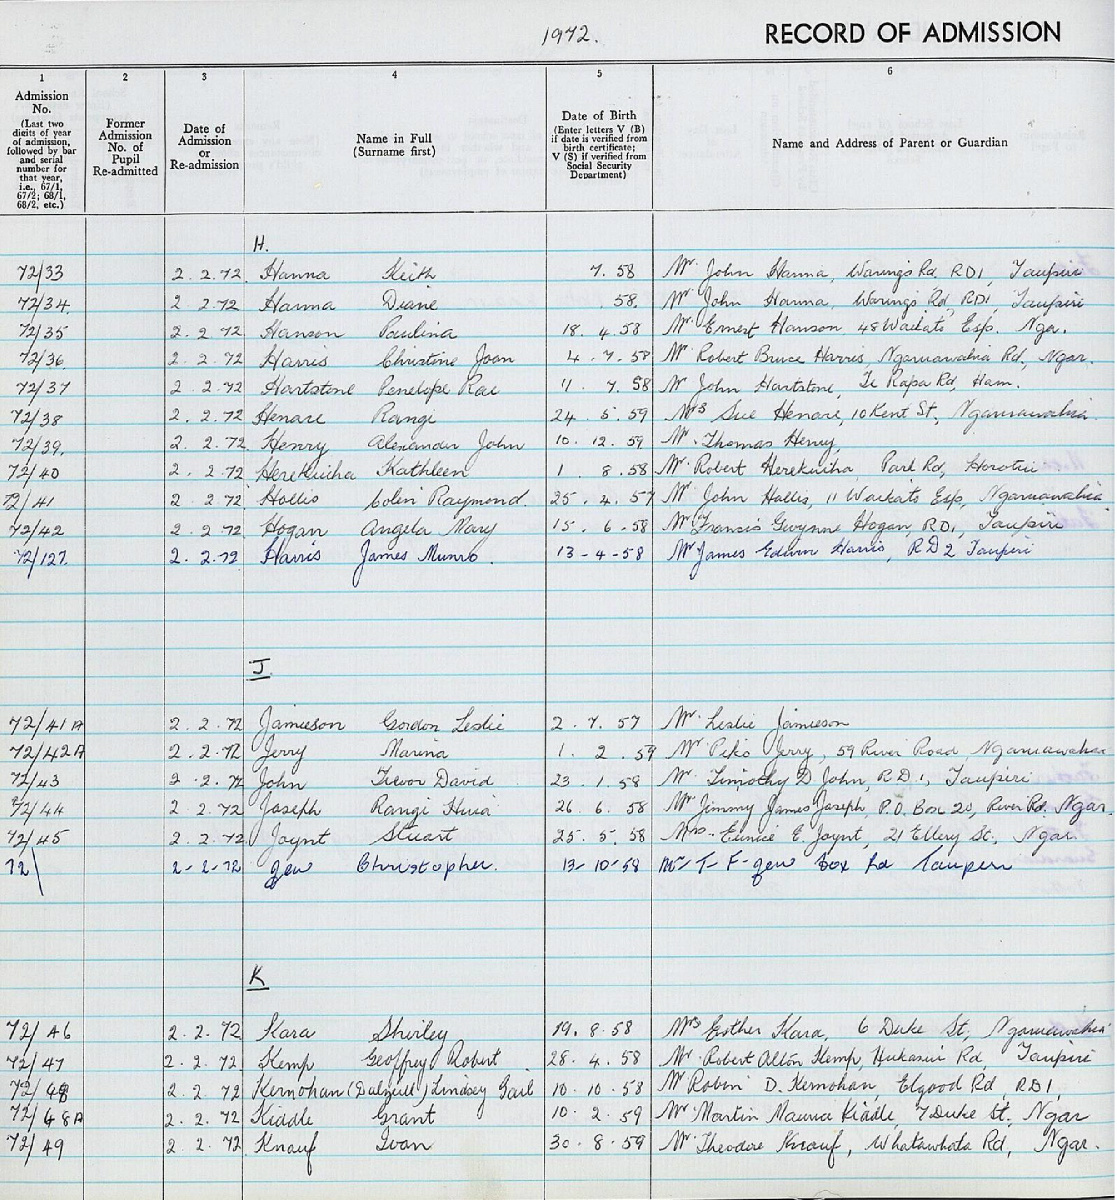 1972.
RECORD OF ADMISSION
1 2 3 4 5 6
Admission No. (Last two digits of year of admission, followed by bar and serial number for that year, i.e., 67/1, 67/2; 68/1, 68/2, etc.)
Former Admission No. of Pupil Re-admitted
Date of Admission or Re-admission
Name in Full (Surname first)
Date of Birth (Enter letters V (B) if date is verified from birth certificate; V (S) if verified from Social Security Department)
Name and Address of Parent or Guardian
H.
72/33 2.2.72 Hanna Keith 7.58 Mr John Hanna, Warings Rd, RD1, Taupiri
72/34. 2.2.72 Hanna Diane .58 Mr John Hanna, Warings Rd, RD1, Taupiri
72/35 2.2.72 Hanson Paulina 18.4.58 Mr. Ernest Hanson 48 Waikato Esp. Nga.
72/36 2.2.72 Harris Christine Joan 4.7.58 Mr Robert Bruce Harris, Ngaruawahia Rd, Ngar.
72/37 2.2.72 Hartstone Penelope Rae 11.7.58 Mr John Hartstone, Te Rapa Rd, Ham.
72/38 2.2.72 Henare Rangi 24.5.59 Mrs Sue Henare, 10 Kent St, Ngaruawahia.
72/39. 2.2.72 Henry Alexander John 10.12.59 Mr. Thomas Henry,
72/40 2.2.72 Herekuiha Kathleen 1 8.58 Mr. Robert Herekuiha Park Rd, Horotiu
72/41 2.2.72 Hollis Colin Raymond. 25.4.57 Mr. John Hollis, 11 Waikato Esp, Ngaruawahia
72/42 2.2.72 Hogan Angela Mary 15.6.58 Mr Francis Gwynne Hogan, RD1, Taupiri
72/127. 2.2.72 Harris James Munro. 13-4-58 Mr James Edwin Harris, RD2 Taupiri
J
72/41A 2.2.72 Jamieson Gordon Leslie 2.7.57 Mr. Leslie Jamieson
72/42A 2.2.72 Jerry Marina 1.2.59 Mr Peko Jerry, 59 River Road, Ngaruawahia
72/43 2.2.72 John Trevor David 23.1.58 Mr. Timothy D John, R.D.1, Taupiri
72/44 2.2.72 Joseph Rangi Huia 26.6.58 Mr. Jimmy James Joseph, P.O. Box 20, River Rd. Ngar
72/45 2.2.72 Joynt Stuart 25.5.58 Mrs. Eunice E. Joynt, 21 Ellery St, Ngar.
72\ 2-2-72 Jew Christopher. 13-10-58 Mr T-F-Jew Box Rd Taupiri
K
72/46 2.2.72 Kara Shirley 19.8.58 Mrs Esther Kara, 6 Duke St, Ngaruawahia
72/47 2.2.72 Kemp Geoffrey Robert 28.4.58 Mr Robert Alton Kemp, Hukanui Rd Taupiri
72/48 2.2.72 Kernohan (Dalzell) Lindsey Gail 10.10.58 Mr Robin D. Kernohan, Elgood Rd, RD1,
72/48A 2.2.72 Kiddle Grant 10.2.59 Mr Martin Maurice Kiddle, 7 Duke St, Ngar
72/49 2.2.72 Knauf Ivan 30.8.59 Mr Theodore Knauf, Whatawhata Rd, Ngar.